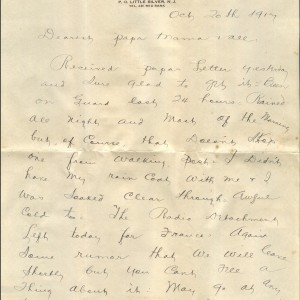 P. O. LITTLE SILVER, N. J.
Oct. 20th, 1917
Dearest papa Mama & all.
Received papa letter yesterday
and sure glad to get it. Been
on Guard last 24 hours. Rained
all night and most of the Morning
but of course that doesn't stop
one from walking post. I didn't
have my rain coat with me & I
was soaked clear through. Awful
cold to. The Radio Detachment
left today for France. Again
some rumor that we will leave
shortly but you cant tell a
thing about it. May go at any